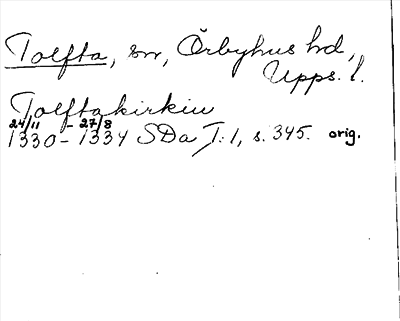 Tolfta, sn, Örbyhus hd,
Upps. l.
Tolftakirkiu
24/11 - 27/8
1330 - 1334 SDa I:1, s. 345. orig.